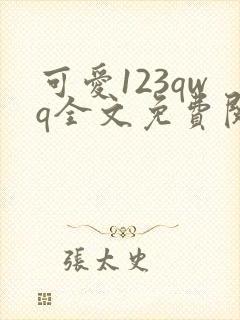 可愛123qw
q全文免費閱
張太史